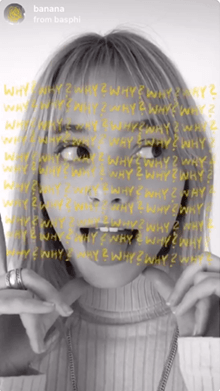 banana
from basphi
WHY? WHY? WHY? WHY? WHY?
WHY? WHY? WHY? WHY? WHY?
WHY? WHY? WHY? WHY? WHY?
WHY? WHY? WHY? WHY? WHY?
WHY? WHY? WHY? WHY? WHY?
WHY? WHY? WHY? WHY? WHY?
WHY? WHY? WHY? WHY? WHY?
WHY? WHY? WHY? WHY? WHY?
WHY? WHY? WHY? WHY? WHY?
WHY? WHY? WHY? WHY? WHY?
WHY? WHY? WHY? WHY? WHY?